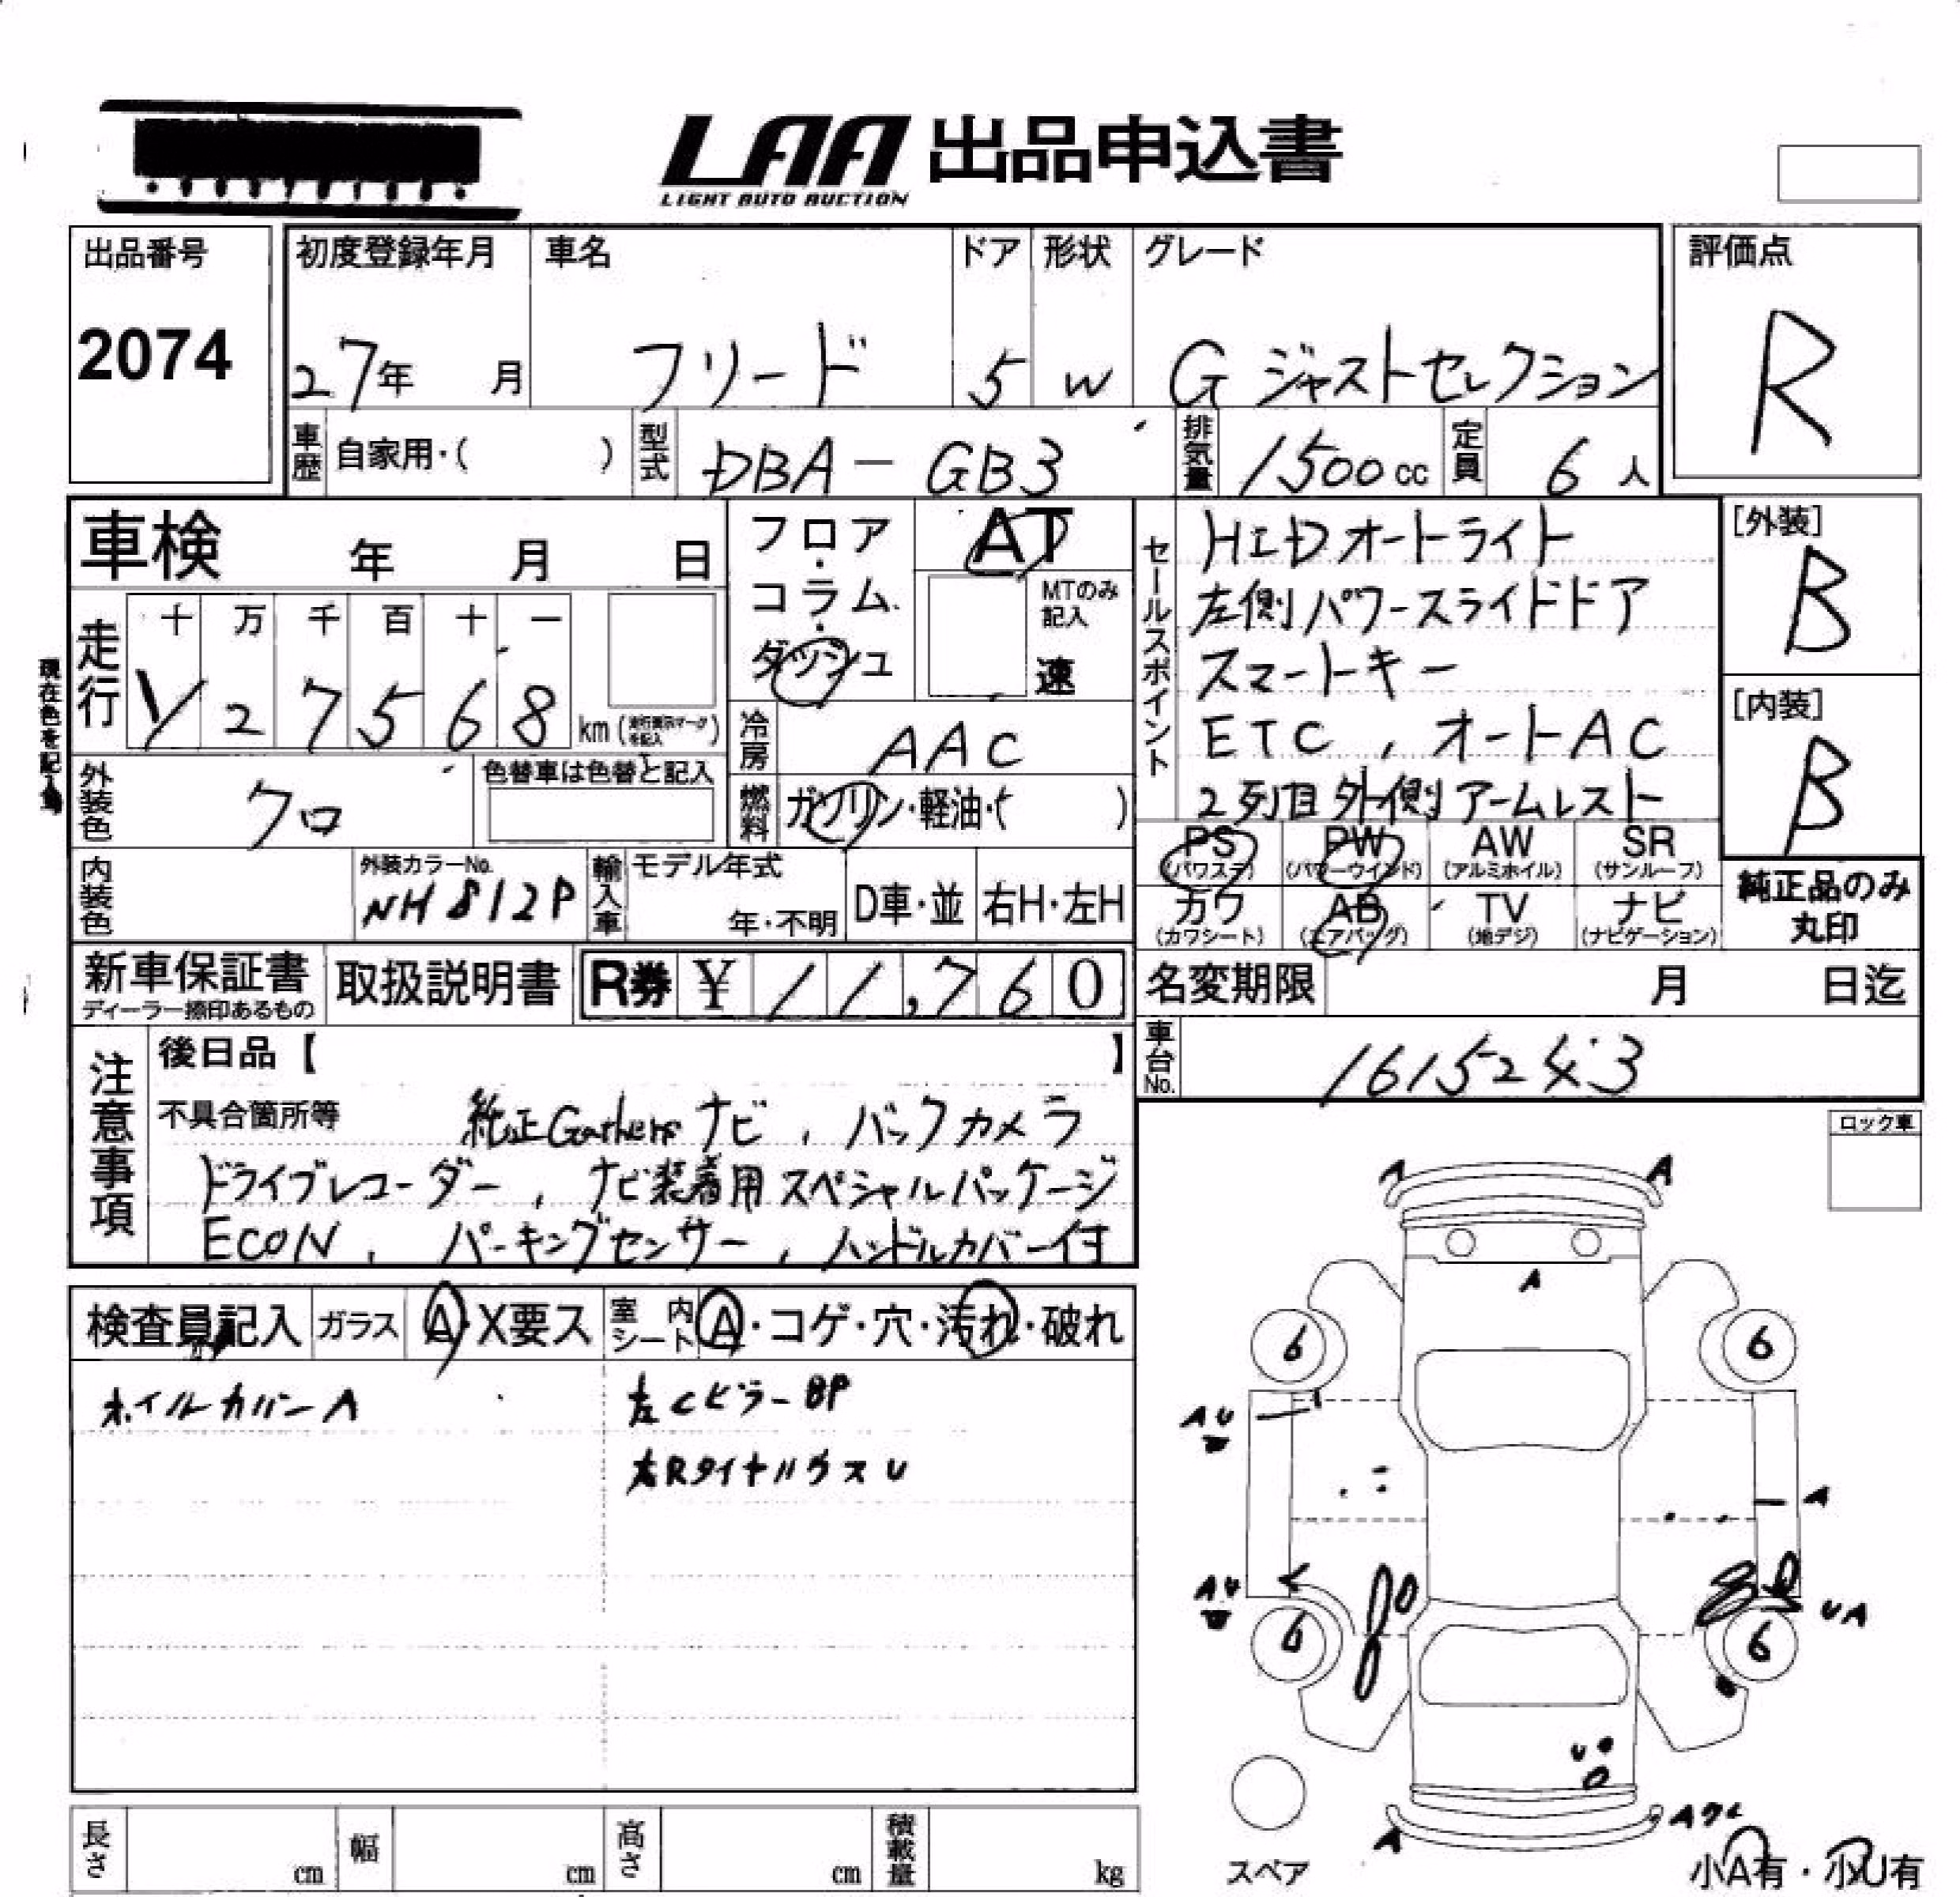 LAA 出品申込書
LIGHT AUTO AUCTION
出品番号
2074
初度登録年月 車名 ドア 形状 グレード
27年 月 フリード 5 W G ジャストセレクション
評価点
R
車歴 自家用・( ) 型式 DBA-GB3 排気量 1500cc 定員 6人
車検 年 月 日
フロア・コラム・ダッシュ
AT
MTのみ記入
速
走行 十 万 千 百 十 一
127568 km
現在色を記入
冷房 AAC
外装色 クロ
色替車は色替と記入
燃料 ガソリン・軽油・( )
内装色
外装カラーNo.
NH812P
輸入車 モデル年式
年・不明 D車・並 右H・左H
セールスポイント
HIDオートライト
左側パワースライドドア
スマートキー
ETC, オートAC
2列目外側アームレスト
[外装]
B
[内装]
B
PS (パワステ) PW (パワーウインド) AW (アルミホイル) SR (サンルーフ)
カワ (カワシート) AB (エアバッグ) TV (地デジ) ナビ (ナビゲーション)
純正品のみ丸印
新車保証書
ディーラー捺印あるもの
取扱説明書
R券 ¥ 11,760
名変期限 月 日迄
車台No. 1615243
注意事項
後日品【 】
不具合箇所等 純正Gathersナビ, バックカメラ
ドライブレコーダー, ナビ装着用スペシャルパッケージ
ECON, パーキングセンサー, ハンドルカバー付
ロック車
検査員記入 ガラス A・X要ス 室内シート A・コゲ・穴・汚れ・破れ
ホイルカバーA
左CピラーBP
右RタイヤハウスU
A A
A
6 6
AU
A
AU
UA
6 6
U
A
Aワレ
スペア
小A有・小U有
長さ cm 幅 cm 高さ cm 積載量 kg